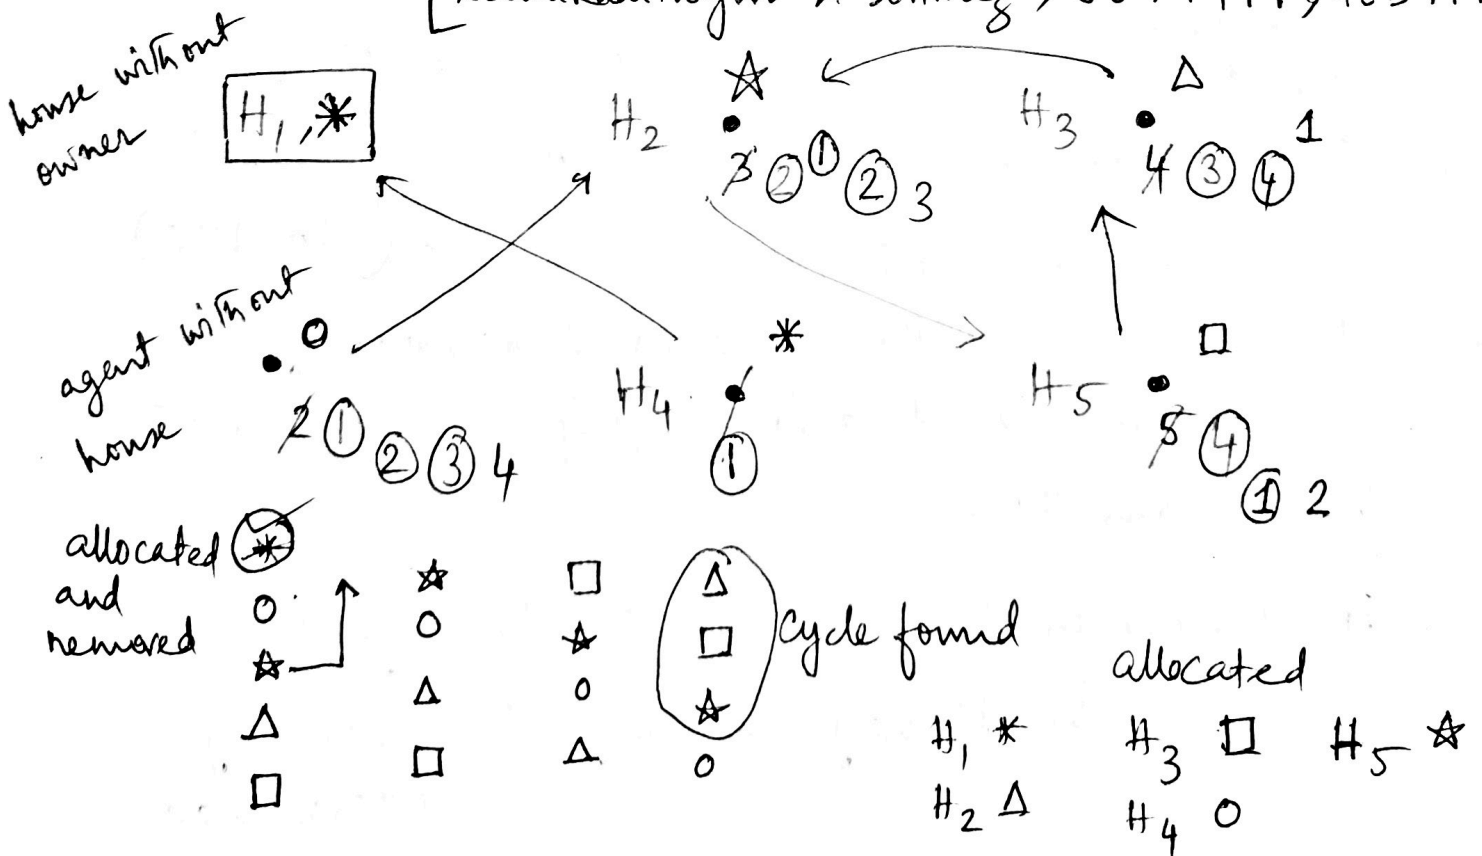 house without
owner
H1, *
H2 ☆
3 2 1 2 3
H3 △
4 3 4 1
agent without
house
○
2 1 2 3 4
H4 *
1
H5 □
5 4 1 2
allocated
and
removed
* ☆ □ △
○ ○ ☆ □
☆ △ ○ ☆
△ □ △ ○
□
cycle found
allocated
H1 * H3 □ H5 ☆
H2 △ H4 ○